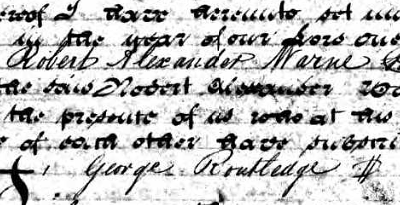 ereof I have hereunto set m
in the year of our Lord one
Robert Alexander Warne
the said Robert Alexander
the presence of us who at his
of each other have subscri
George Routledge